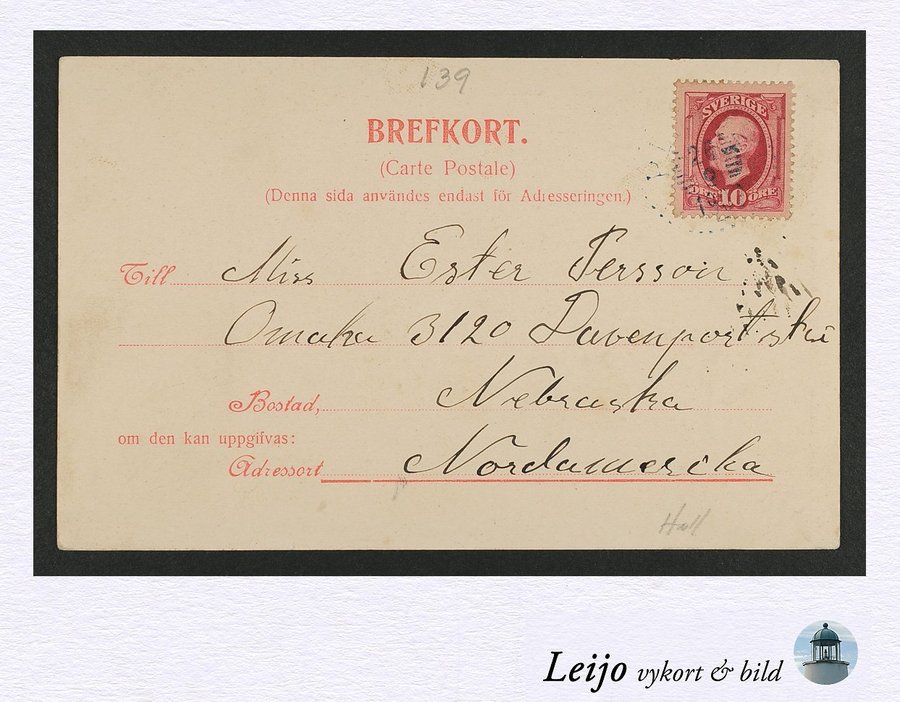 139
BREFKORT.
(Carte Postale)
(Denna sida användes endast för Adresseringen.)
SVERIGE
10 ÖRE
Till Miss Ester Persson
Omaha 3120 Davenport
Bostad, Nebraska
om den kan uppgifvas:
Adressort Nordamerika
Leijo vykort & bild